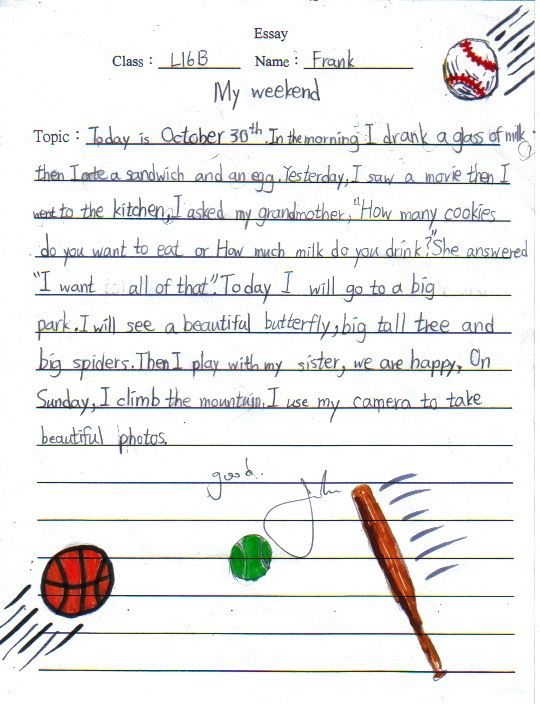 Essay
Class : L16B Name : Frank
My weekend
Topic : Today is October 30th. In the morning I drank a glass of milk,
then I ate a sandwich and an egg. Yesterday, I saw a movie then I
went to the kitchen, I asked my grandmother, "How many cookies
do you want to eat or How much milk do you drink?" She answered
"I want all of that". Today I will go to a big
park. I will see a beautiful butterfly, big tall tree and
big spiders. Then I play with my sister, we are happy. On
Sunday, I climb the mountain. I use my camera to take
beautiful photos.
good.